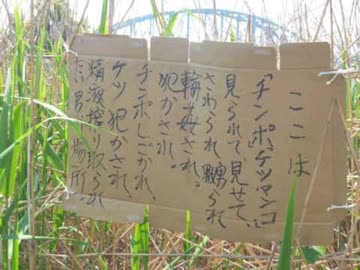 ここは
「チンポ、ケツマンコ」
見られて、見せて、
さわられ、嬲られ
輪姦され。
犯かされ。
チンポしごかれ、
ケツ犯かされ、
精液搾り取られ